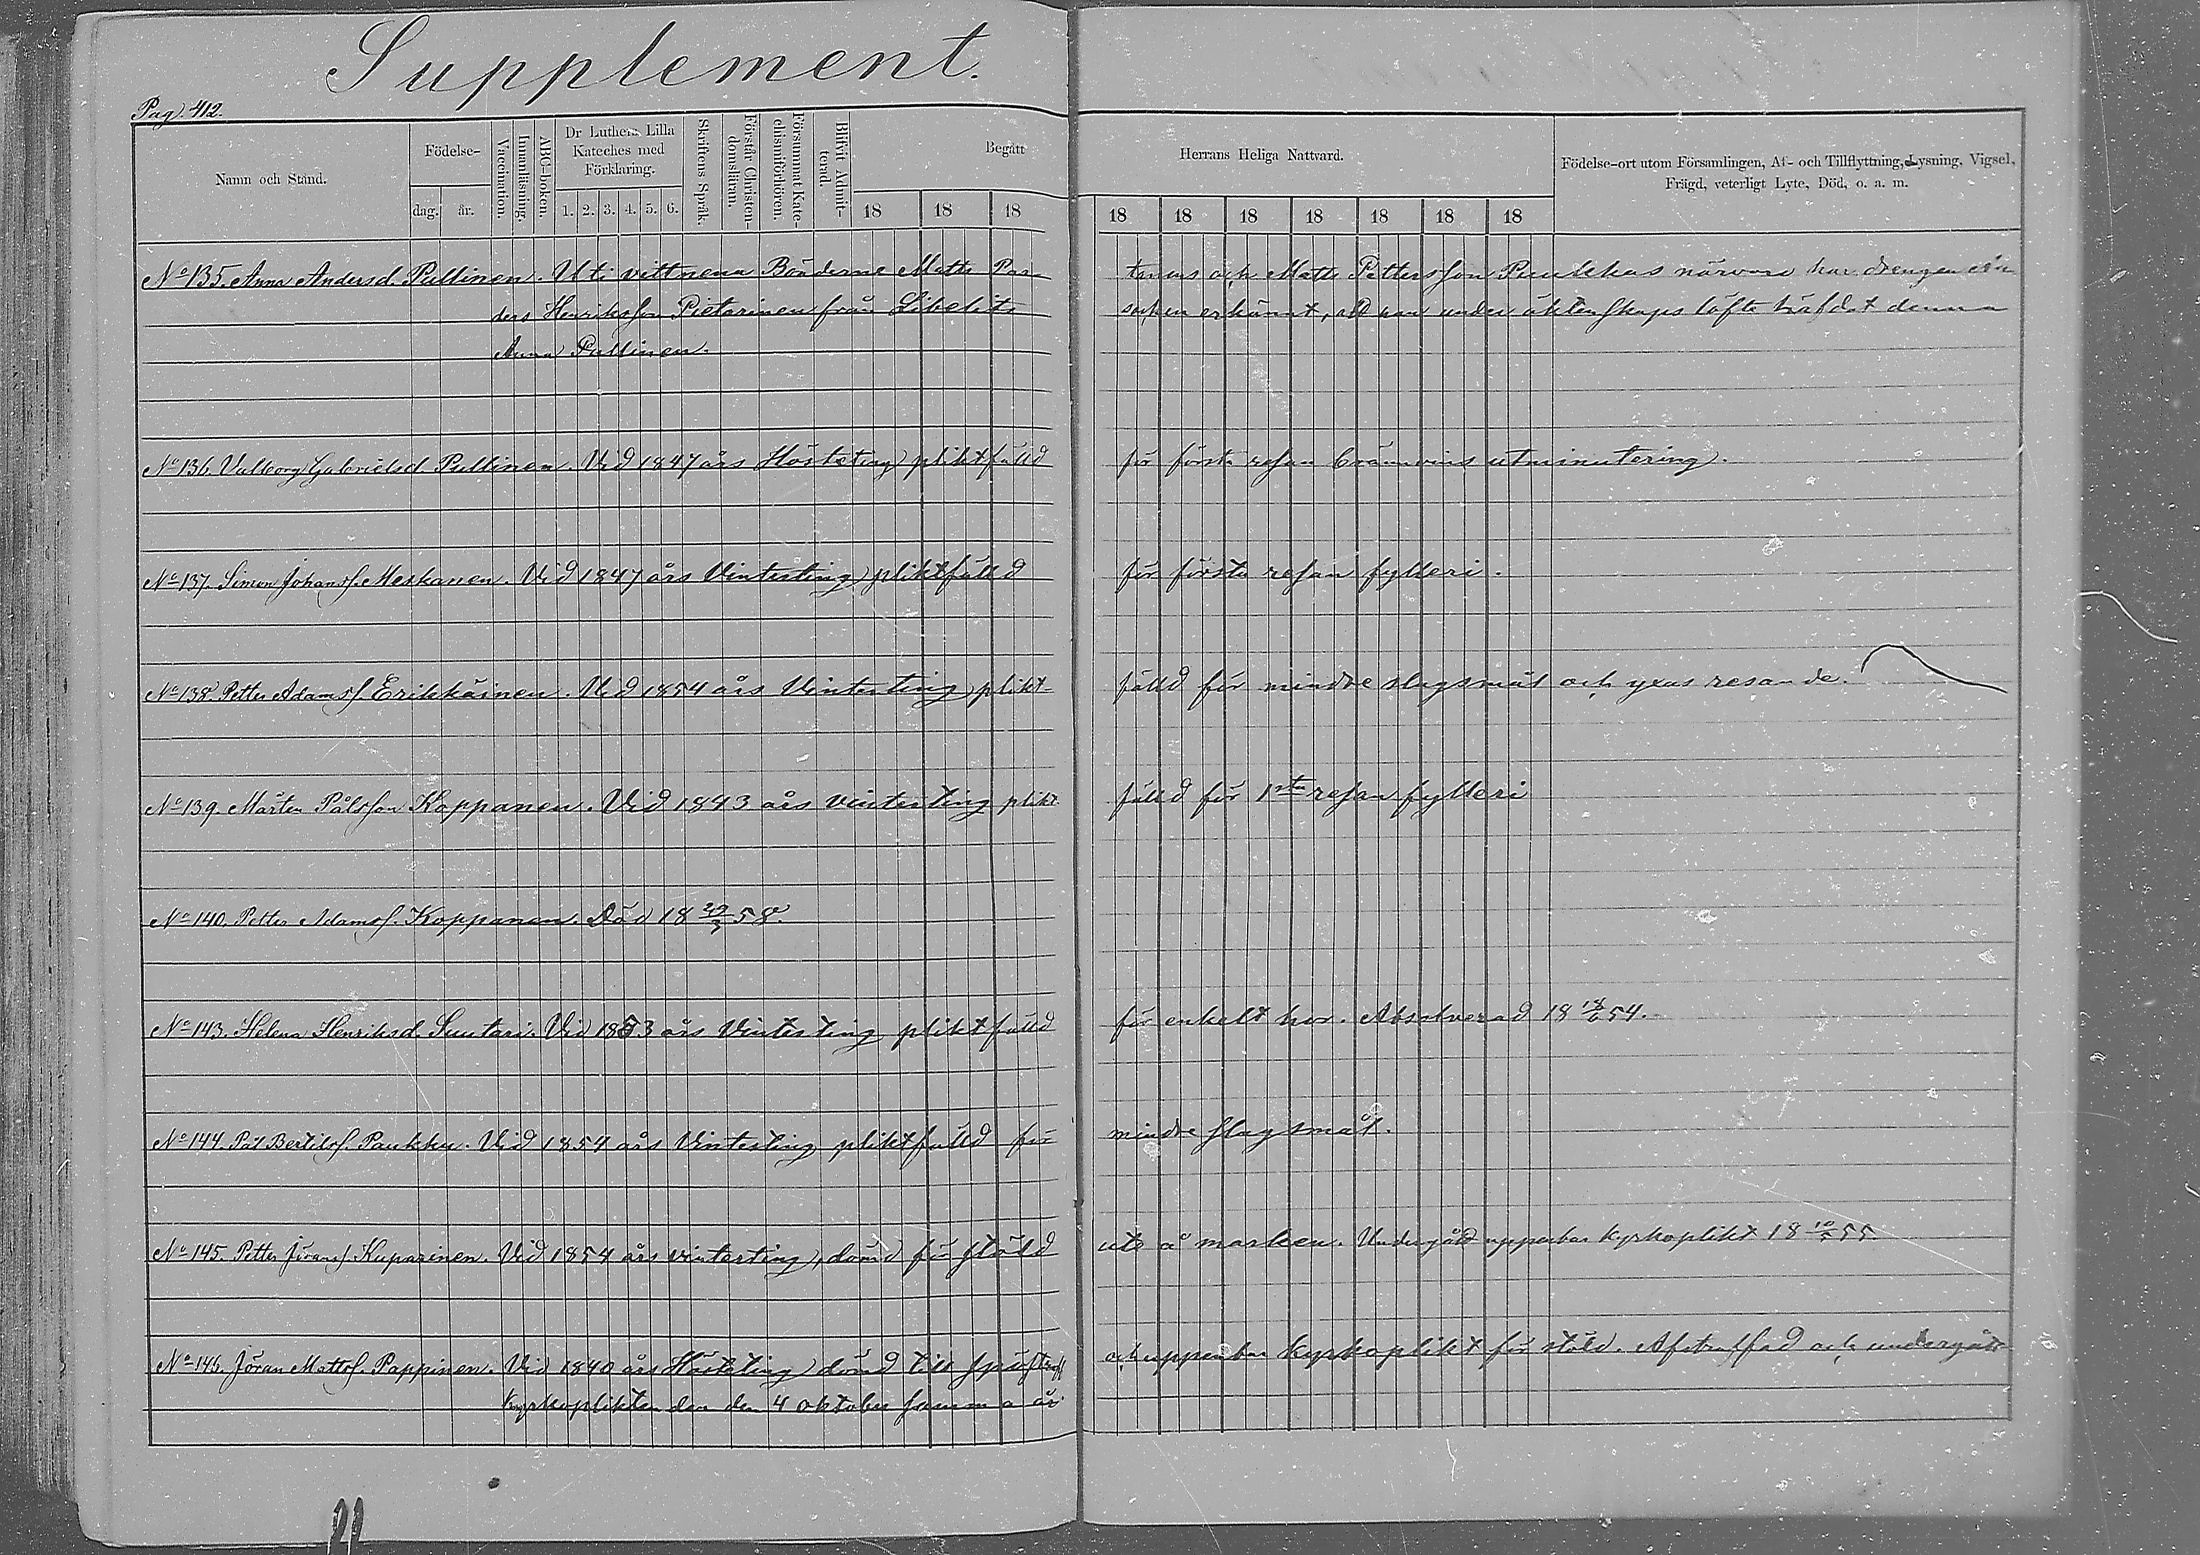 Supplement.
Pag. 412.
Namn och Stånd.
Födelse-
dag. år.
Vaccination.
Innanläsning.
ABC-boken.
Dr Luthers Lilla Kateches med Förklaring.
1. 2. 3. 4. 5. 6.
Skriftens Språk.
Förstår Christendomsläran.
Försummat Katechismiförhören.
Blifvit Admitterad.
Begått Herrans Heliga Nattvard.
18 18 18 18 18 18 18 18 18 18
Födelse-ort utom Församlingen, Af- och Tillflyttning, Lysning, Vigsel,
Frägd, veterligt Lyte, Död, o. a. m.
No 135. Anna Andersd. Pullinen. Uti vittnena Bönderne Matts Par- tanens och Matts Pettersson Puukkas närvaro har drengen
ders Henriksson Pietarinen från Libelits socken erkännt, att han under äktenskaps löfte häfdat denna
Anna Pullinen.
No 136. Valborg Gabrielsd Pullinen. Vid 1847 års Hösteting pliktfälld för första resan bränvins utminutering.
No 137. Simon Johanss. Meskanen. Vid 1847 års Vinterting pliktfälld för första resan fylleri.
No 138 Petter Adamss. Erikkäinen. Vid 1854 års Vinterting plikt- fälld för mindre slagsmål och yxas resande.
No 139. Mårten Pålsson Koppanen. Vid 1843 års vinterting plikt fälld för 1sta resan fylleri
No 140. Petter Adamss. Koppanen. Död 18 29/3 58.
No 143. Helena Henriksd. Suutari. Vid 1853 års Vinterting pliktfälld för enkelt hor. Absolverad 18 18/6 54.
No 144. Pål Bertilss. Paukku. Vid 1854 års Vinterting pliktfälld för mindre slagsmål.
No 145. Petter Jöranss. Kuparinen. Vid 1854 års vinterting, dömd för stöld ute å marken. Undergått uppenbar kyrkoplikt 18 10/5 55
No 146. Jöran Mattss. Pappinen. Vid 1840 års Hösteting dömd till spöstraff och uppenbar kyrkoplikt för stöld. Afstraffad och undergått
kyrkoplikten den den 4 oktober samma år